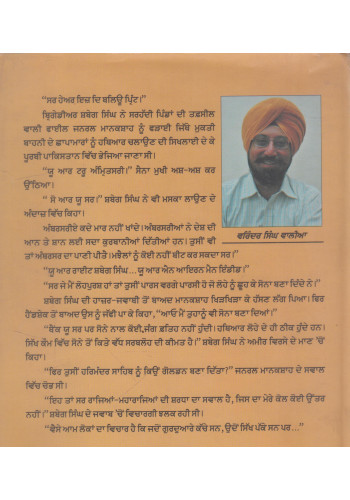 “ਸਰ ਹੇਅਰ ਇਜ਼ ਦਿ ਬਲਿਊ ਪ੍ਰਿੰਟ।”
ਬ੍ਰਿਗੇਡੀਅਰ ਸ਼ਬੇਗ ਸਿੰਘ ਨੇ ਸਰਹੱਦੀ ਪਿੰਡਾਂ ਦੀ ਤਫ਼ਸੀਲ
ਵਾਲੀ ਫਾਈਲ ਜਨਰਲ ਮਾਨਕਸ਼ਾਹ ਨੂੰ ਫੜਾਈ ਜਿੱਥੇ ਮੁਕਤੀ
ਬਾਹਨੀ ਦੇ ਛਾਪਾਮਾਰਾਂ ਨੂੰ ਹਥਿਆਰ ਚਲਾਉਣ ਦੀ ਸਿਖਲਾਈ ਦੇ ਕੇ
ਪੂਰਬੀ ਪਾਕਿਸਤਾਨ ਵਿੱਚ ਭੇਜਿਆ ਜਾਣਾ ਸੀ।
“ਯੂ ਆਰ ਟਰੂ ਅੰਮ੍ਰਿਤਸਰੀ।” ਸੈਨਾ ਮੁਖੀ ਅਸ਼-ਅਸ਼ ਕਰ
ਉੱਠਿਆ।
“ ਸੋ ਆਰ ਯੂ ਸਰ।” ਸ਼ਬੇਗ ਸਿੰਘ ਨੇ ਵੀ ਮਸਕਾ ਲਾਉਣ ਦੇ
ਅੰਦਾਜ਼ ਵਿੱਚ ਕਿਹਾ।
ਅੰਬਰਸਰੀਏ ਕਦੇ ਮਾਰ ਨਹੀਂ ਖਾਂਦੇ। ਅੰਬਰਸਰੀਆਂ ਨੇ ਦੇਸ਼ ਦੀ
ਆਨ ਤੇ ਸ਼ਾਨ ਲਈ ਸਦਾ ਕੁਰਬਾਨੀਆਂ ਦਿੱਤੀਆਂ ਹਨ। ਤੁਸੀਂ ਵੀ
ਤਾਂ ਅੰਬਰਸਰ ਦਾ ਪਾਣੀ ਪੀਤੈ।ਮਝੈਲਾਂ ਨੂੰ ਕੋਈ ਨਹੀਂ ਬੀਟ ਕਰ ਸਕਦਾ ਸਰ।”
“ਯੂ ਆਰ ਰਾਈਟ ਸ਼ਬੇਗ ਸਿੰਘ...ਯੂ ਆਰ ਐਨ ਆਇਰਨ ਮੈਨ ਇੰਡੀਡ।”
“ਸਰ ਜੇ ਮੈਂ ਲੋਹਪੁਰਸ਼ ਹਾਂ ਤਾਂ ਤੁਸੀਂ ਪਾਰਸ ਵਰਗੇ ਪਾਰਸੀ ਹੋ ਜੋ ਲੋਹੇ ਨੂੰ ਛੂਹ ਕੇ ਸੋਨਾ ਬਣਾ ਦਿੰਦੇ ਨੇ।”
ਸ਼ਬੇਗ ਸਿੰਘ ਦੀ ਹਾਜ਼ਰ-ਜਵਾਬੀ ਤੋਂ ਬਾਅਦ ਮਾਨਕਸ਼ਾਹ ਖਿੜਖਿੜਾ ਕੇ ਹੱਸਣ ਲੱਗ ਪਿਆ। ਫਿਰ
ਹੈਂਡਸ਼ੇਕ ਤੋਂ ਬਾਅਦ ਉਸ ਨੂੰ ਜੱਫੀ ਪਾ ਕੇ ਕਿਹਾ, “ਆਓ ਮੈਂ ਤੁਹਾਨੂੰ ਵੀ ਸੋਨਾ ਬਣਾ ਦਿਆਂ।”
“ਥੈਂਕ ਯੂ ਸਰ ਪਰ ਸੋਨੇ ਨਾਲ ਕੋਈ,ਜੰਗ ਫ਼ਤਿਹ ਨਹੀਂ ਹੁੰਦੀ। ਹਥਿਆਰ ਲੋਹੇ ਦੇ ਹੀ ਠੀਕ ਹੁੰਦੇ ਹਨ।
ਸਿੱਖ ਕੌਮ ਵਿੱਚ ਸੋਨੇ ਤੋਂ ਕਿਤੇ ਵੱਧ ਸਰਬਲੋਹ ਦੀ ਕੀਮਤ ਹੈ।” ਸ਼ਬੇਗ ਸਿੰਘ ਨੇ ਅਮੀਰ ਵਿਰਸੇ ਦੇ ਮਾਣ 'ਚੋਂ
ਕਿਹਾ।
“ਫਿਰ ਤੁਸੀਂ ਹਰਿਮੰਦਰ ਸਾਹਿਬ ਨੂੰ ਕਿਉਂ ਗੋਲਡਨ ਬਣਾ ਦਿੱਤਾ?” ਜਨਰਲ ਮਾਨਕਸ਼ਾਹ ਦੇ ਸਵਾਲ
ਵਿੱਚ ਚੋਭ ਸੀ।
“ਇਹ ਤਾਂ ਸਰ ਰਾਜਿਆਂ-ਮਹਾਰਾਜਿਆਂ ਦੀ ਸ਼ਰਧਾ ਦਾ ਸਵਾਲ ਹੈ, ਜਿਸ ਦਾ ਮੇਰੇ ਕੋਲ ਕੋਈ ਉੱਤਰ
ਨਹੀਂ।” ਸ਼ਬੇਗ ਸਿੰਘ ਦੇ ਜਵਾਬ 'ਚੋਂ ਵਿਚਾਰਗੀ ਝਲਕ ਰਹੀ ਸੀ।
“ਵੈਸੇ ਆਮ ਲੋਕਾਂ ਦਾ ਵਿਚਾਰ ਹੈ ਕਿ ਜਦੋਂ ਗੁਰਦੁਆਰੇ ਕੱਚੇ ਸਨ, ਉਦੋਂ ਸਿੱਖ ਪੱਕੇ ਸਨ ਪਰ...”
ਵਰਿੰਦਰ ਸਿੰਘ ਵਾਲੀਆ